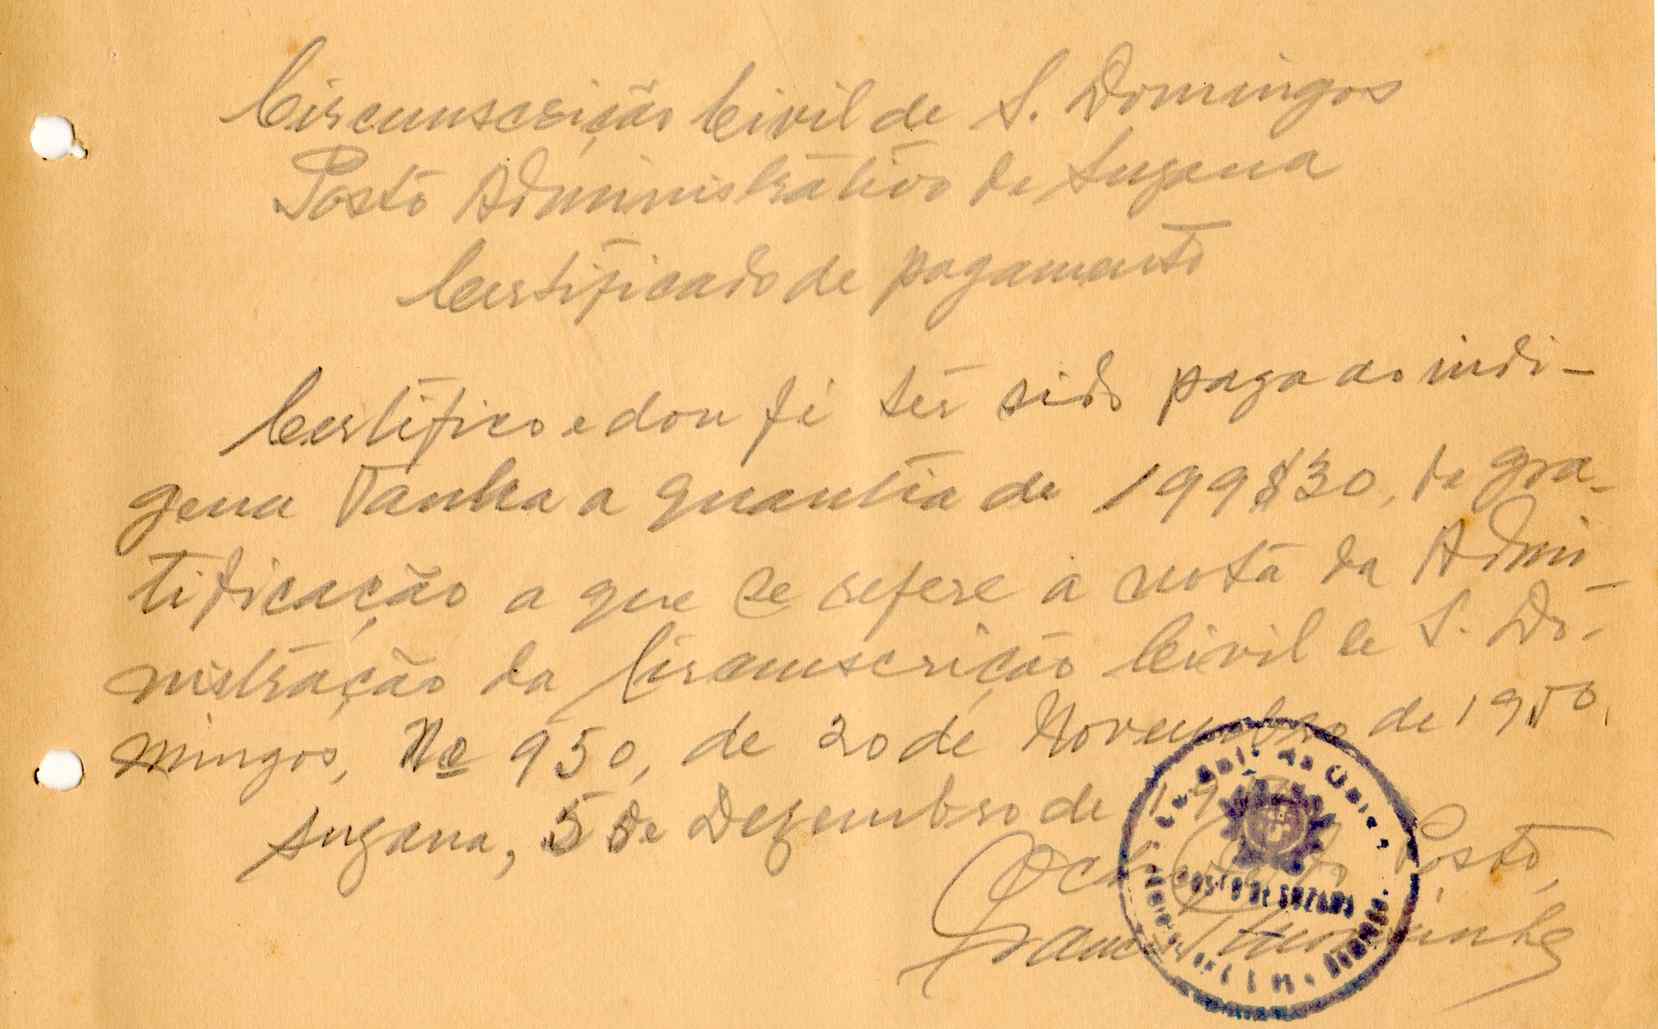 Circunscrição Civil de S. Domingos
Posto Administrativo de Suzana
Certificado de pagamento
Certifico e dou fé ter sido pago ao indi-
gena Tanha a quantia de 199$30, de gra-
tificação a que se refere a nota da Admi-
nistração da Circunscrição Civil de S. Do-
mingos, Nº 950, de 20 de Novembro de 1950.
Suzana, 5 de Dezembro de 19
O Chefe do Posto,
POSTO DE SUZANA